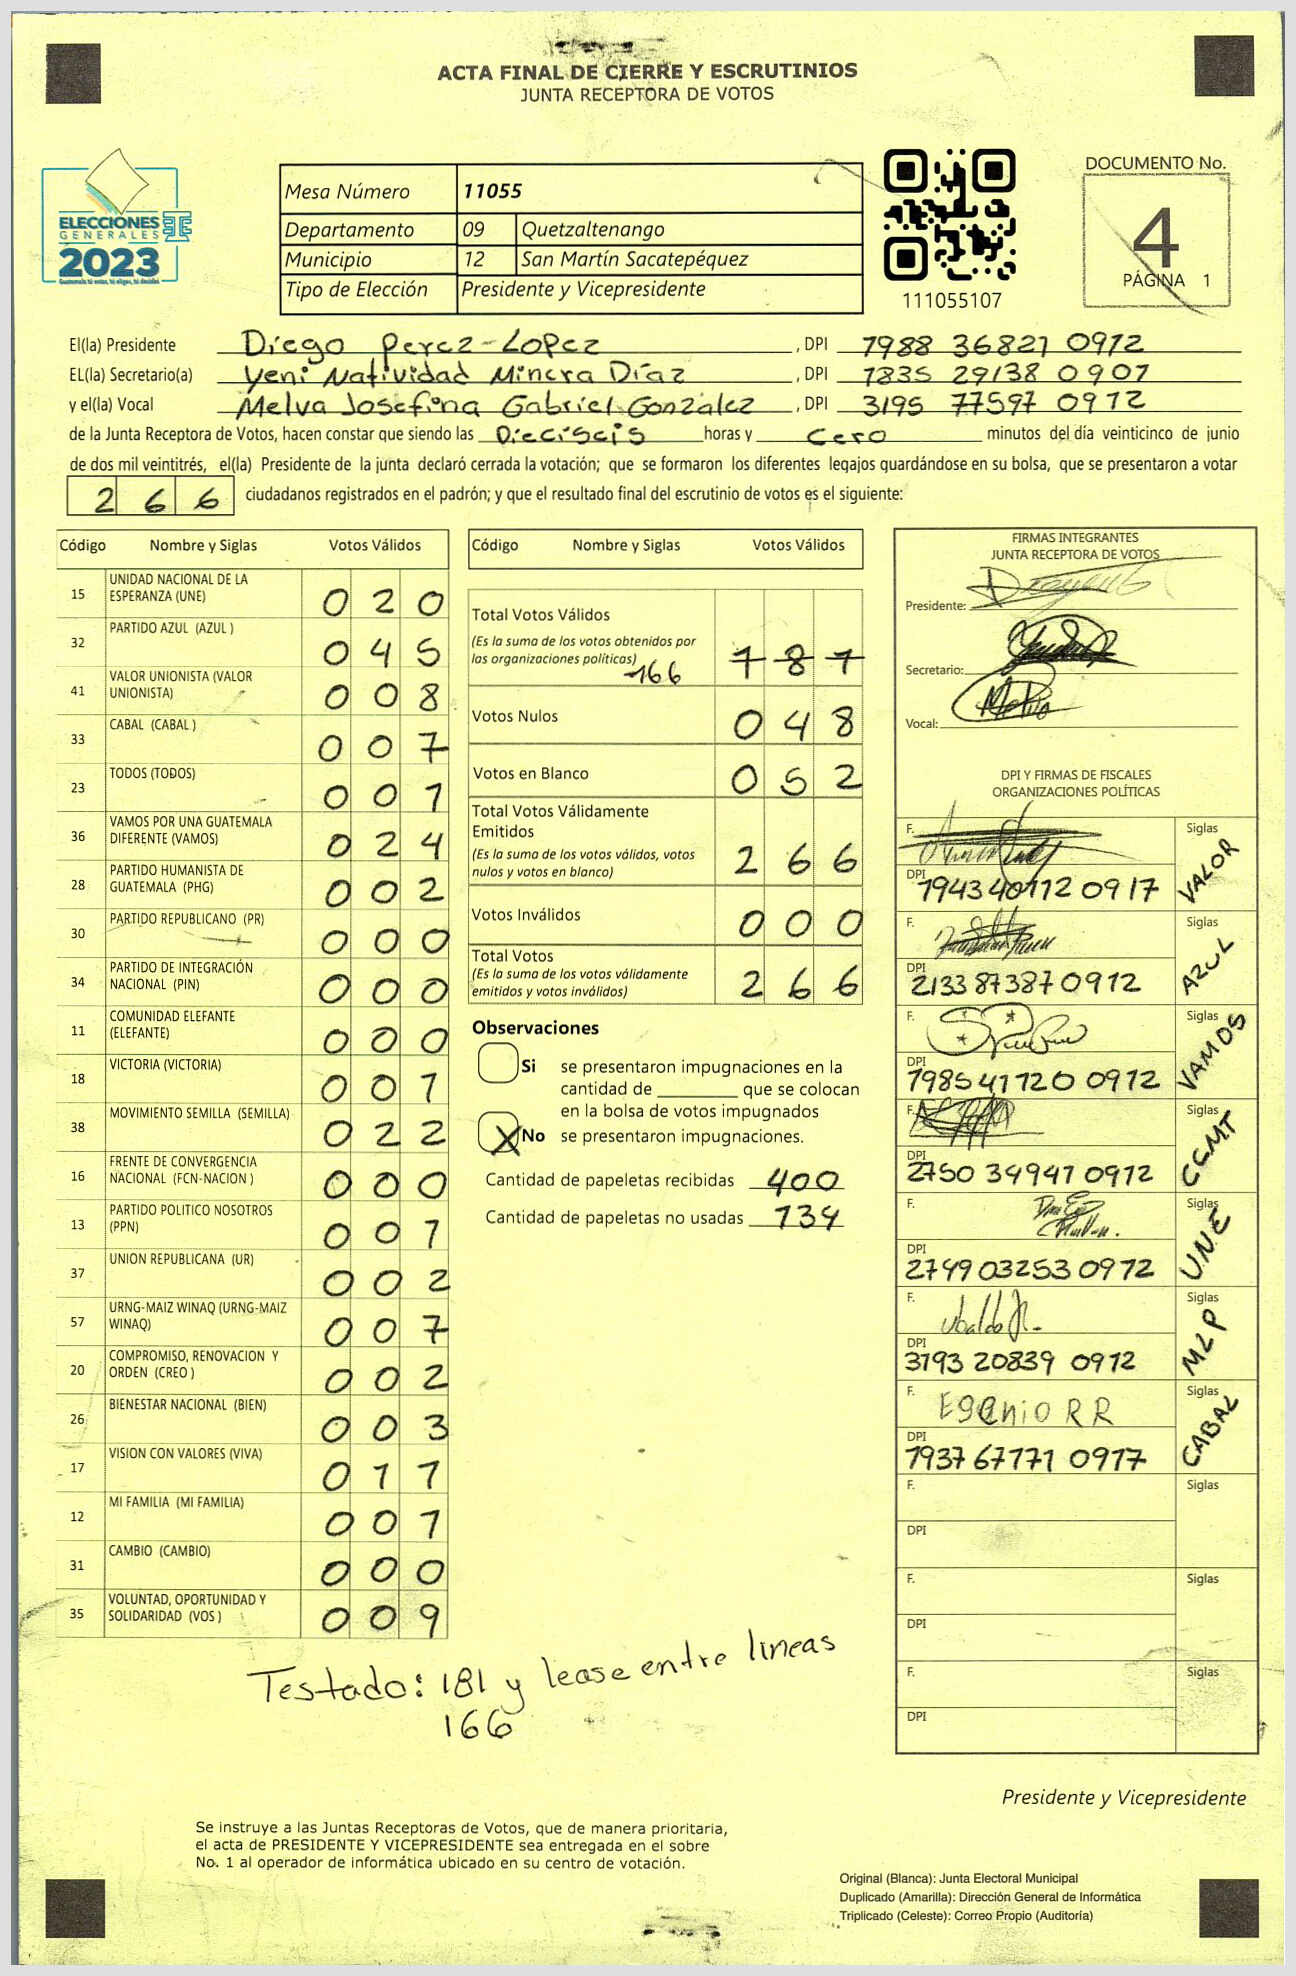 ACTA FINAL DE CIERRE Y ESCRUTINIOS
JUNTA RECEPTORA DE VOTOS
ELECCIONES
GENERALES
2023
Mesa Número 11055
Departamento 09 Quetzaltenango
Municipio 12 San Martín Sacatepéquez
Tipo de Elección Presidente y Vicepresidente
111055107
DOCUMENTO No.
4
PÁGINA 1
El(la) Presidente Diego Perez Lopez, DPI 1988 36821 0912
EL(la) Secretario(a) Yeni Natividad Minera Díaz, DPI 1835 29138 0901
y el(la) Vocal Melva Josefina Gabriel Gonzalez, DPI 3195 77597 0912
de la Junta Receptora de Votos, hacen constar que siendo las Dieciseis horas y cero minutos del día veinticinco de junio
de dos mil veintitrés, el(la) Presidente de la junta declaró cerrada la votación; que se formaron los diferentes legajos guardándose en su bolsa, que se presentaron a votar
266 ciudadanos registrados en el padrón; y que el resultado final del escrutinio de votos es el siguiente:
Código Nombre y Siglas Votos Válidos
15 UNIDAD NACIONAL DE LA ESPERANZA (UNE) 020
32 PARTIDO AZUL (AZUL ) 045
41 VALOR UNIONISTA (VALOR UNIONISTA) 008
33 CABAL (CABAL ) 007
23 TODOS (TODOS) 001
36 VAMOS POR UNA GUATEMALA DIFERENTE (VAMOS) 024
28 PARTIDO HUMANISTA DE GUATEMALA (PHG) 002
30 PARTIDO REPUBLICANO (PR) 000
34 PARTIDO DE INTEGRACIÓN NACIONAL (PIN) 000
11 COMUNIDAD ELEFANTE (ELEFANTE) 000
18 VICTORIA (VICTORIA) 001
38 MOVIMIENTO SEMILLA (SEMILLA) 022
16 FRENTE DE CONVERGENCIA NACIONAL (FCN-NACION ) 000
13 PARTIDO POLITICO NOSOTROS (PPN) 001
37 UNION REPUBLICANA (UR) 002
57 URNG-MAIZ WINAQ (URNG-MAIZ WINAQ) 007
20 COMPROMISO, RENOVACION Y ORDEN (CREO ) 002
26 BIENESTAR NACIONAL (BIEN) 003
17 VISION CON VALORES (VIVA) 011
12 MI FAMILIA (MI FAMILIA) 001
31 CAMBIO (CAMBIO) 000
35 VOLUNTAD, OPORTUNIDAD Y SOLIDARIDAD (VOS ) 009
Código Nombre y Siglas Votos Válidos
Total Votos Válidos
(Es la suma de los votos obtenidos por
las organizaciones políticas) 181
166
Votos Nulos 048
Votos en Blanco 052
Total Votos Válidamente
Emitidos
(Es la suma de los votos válidos, votos
nulos y votos en blanco) 266
Votos Inválidos 000
Total Votos
(Es la suma de los votos válidamente
emitidos y votos inválidos) 266
Observaciones
Si se presentaron impugnaciones en la
cantidad de ________ que se colocan
en la bolsa de votos impugnados
X No se presentaron impugnaciones.
Cantidad de papeletas recibidas 400
Cantidad de papeletas no usadas 134
FIRMAS INTEGRANTES
JUNTA RECEPTORA DE VOTOS
Presidente:
Secretario:
Vocal:
DPI Y FIRMAS DE FISCALES
ORGANIZACIONES POLÍTICAS
F. Siglas VALOR
DPI 1943 40112 0917
F. Siglas AZUL
DPI 2133 87387 0912
F. Siglas VAMOS
DPI 1985 41120 0912
F. Siglas
DPI 2750 34941 0912
F. Siglas UNE
DPI 2749 03253 0912
F. Ubaldo Siglas MLP
DPI 3193 20839 0912
F. RR Siglas CABAL
DPI 1937 67171 0917
F. Siglas
DPI
F. Siglas
DPI
F. Siglas
DPI
Testado: 181 y lease entre lineas
166
Presidente y Vicepresidente
Se instruye a las Juntas Receptoras de Votos, que de manera prioritaria,
el acta de PRESIDENTE Y VICEPRESIDENTE sea entregada en el sobre
No. 1 al operador de informática ubicado en su centro de votación.
Original (Blanca): Junta Electoral Municipal
Duplicado (Amarilla): Dirección General de Informática
Triplicado (Celeste): Correo Propio (Auditoría)